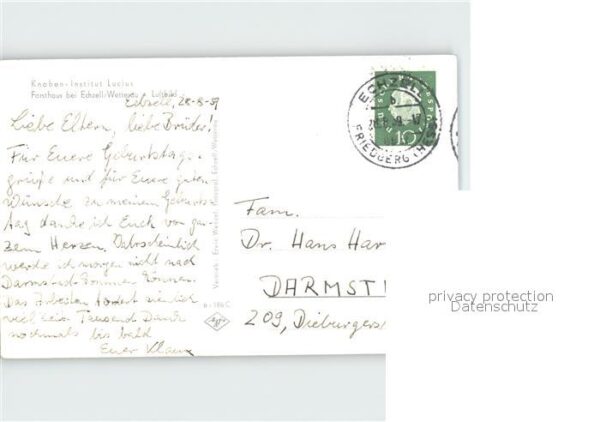 Knaben-Institut Lucius
Forsthaus bei Echzell-Wetterau Luftbild
Echzell, 28-8-59
Liebe Eltern, liebe Brüder!
Für Euere Geburtstags-
grüße und für Euere guten
Wünsche zu meinem Geburts-
tag danke ich Euch von gan-
zem Herzen. Wahrscheinlich
werde ich morgen nicht nach
Darmstadt kommen können.
Das Arbeiten fordert ziemlich
viel Zeit. Tausend Dank
nochmals bis bald
Euer Klaus
ECHZELL
FRIEDBERG (HESS
10
Fam.
Dr. Hans Har
DARMST
209, Dieburgers
privacy protection
Datenschutz